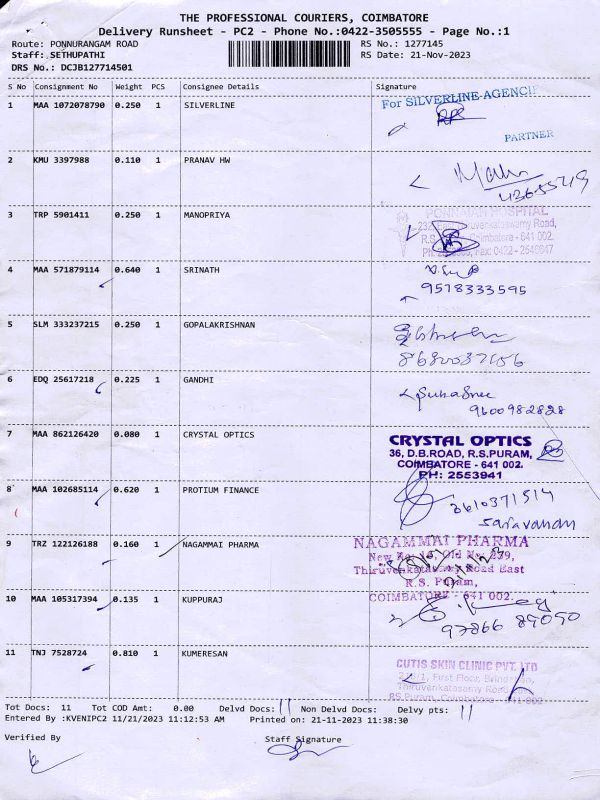 THE PROFESSIONAL COURIERS, COIMBATORE
Delivery Runsheet - PC2 - Phone No.:0422-3505555 - Page No.:1
Route: PONNURANGAM ROAD RS No.: 1277145
Staff: SETHUPATHI RS Date: 21-Nov-2023
DRS No.: DCJB127714501
S No Consignment No Weight PCS Consignee Details Signature
1 MAA 1072078790 0.250 1 SILVERLINE
For SILVERLINE AGENCIE
PARTNER
2 KMU 3397988 0.110 1 PRANAV HW
3 TRP 5901411 0.250 1 MANOPRIYA
PONNAIAH HOSPITAL
Coimbatore - 641 002.
Fax: 0422 -
4 MAA 571879114 0.640 1 SRINATH
9578333595
5 SLM 333237215 0.250 1 GOPALAKRISHNAN
6 EDQ 25617218 0.225 1 GANDHI
9600982828
7 MAA 862126420 0.080 1 CRYSTAL OPTICS
CRYSTAL OPTICS
36, D.B.ROAD, R.S.PURAM,
COIMBATORE - 641 002.
PH: 2553941
8 MAA 102685114 0.620 1 PROTIUM FINANCE
Saravanan
9 TRZ 122126188 0.160 1 NAGAMMAI PHARMA
NAGAMMAI PHARMA
Thiruvenkatasamy Road East
R.S. Puram,
COIMBATORE - 641 002.
10 MAA 105317394 0.135 1 KUPPURAJ
11 TNJ 7528724 0.810 1 KUMERESAN
CUTIS SKIN CLINIC PVT. LTD
First Floor,
Thiruvenkatasamy Road
RS Puram, Coimbatore - 641 002
Tot Docs: 11 Tot COD Amt: 0.00 Delvd Docs: 11 Non Delvd Docs: Delvy pts: 11
Entered By :KVENIPC2 11/21/2023 11:12:53 AM Printed on: 21-11-2023 11:38:30
Verified By Staff Signature